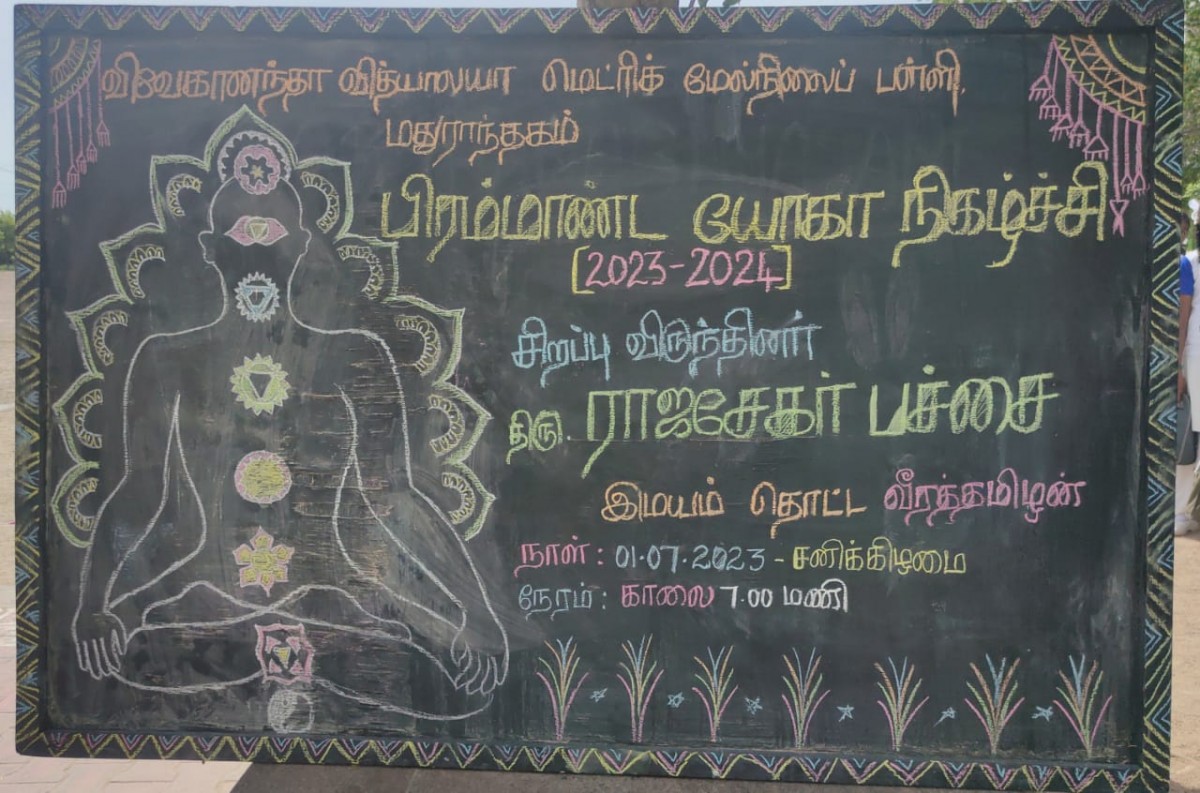 விவேகானந்தா வித்யாலயா மெட்ரிக் மேல்நிலைப் பள்ளி,
மதுராந்தகம்
பிரம்மாண்ட யோகா நிகழ்ச்சி
[2023-2024]
சிறப்பு விருந்தினர்
திரு. ராஜசேகர் பச்சை
இமயம் தொட்ட வீரத்தமிழன்
நாள் : 01.07.2023 - சனிக்கிழமை
நேரம் : காலை 7.00 மணி